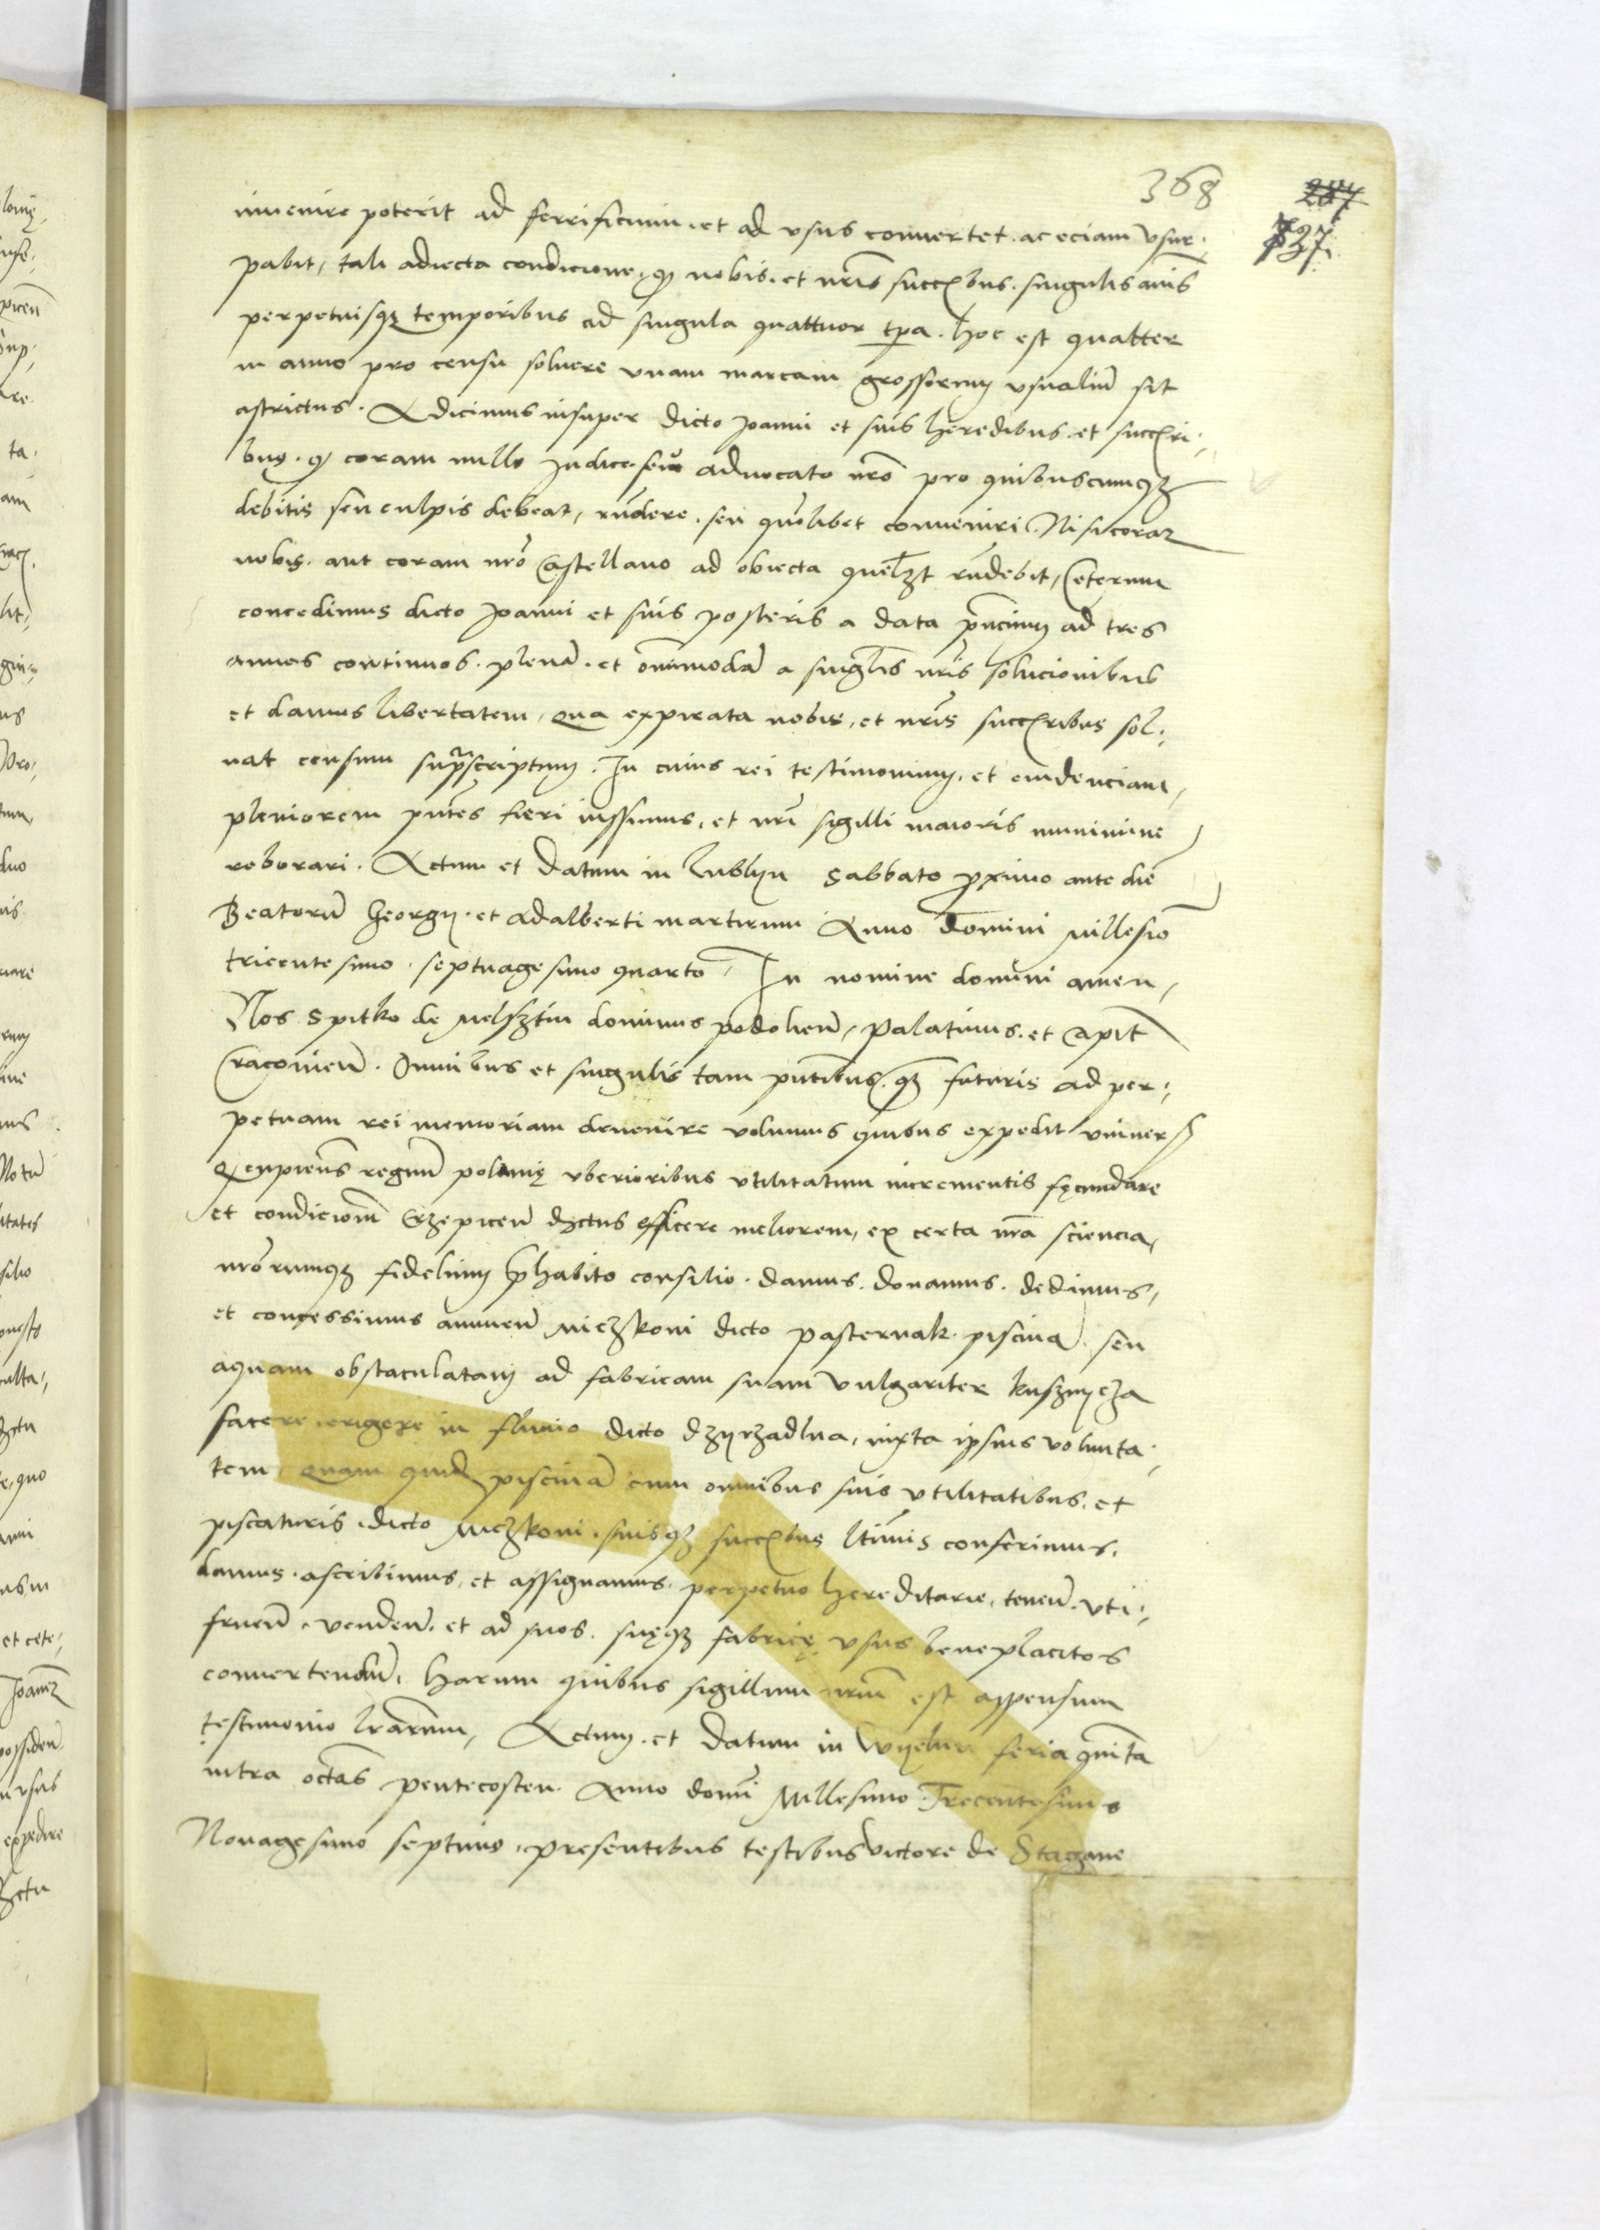 368
727
inuenire poterit ad ferrificium. et ad vsus conuertet. ac eciam vsur:
pabit, tali adiecta condicione, q nobis. et nris succbus. singulis annis
perpetuisqz temporibus ad singula quattuor tpa. hoc est quatter
in anno pro censu soluere vnam marcam grossorum vsualium sit
astrictus. Adicimus insuper dicto Joanni et suis heredibus et succri:
bus. q coram nullo Judice seu aduocato nro pro quibuscumqz
debitis seu culpis debeat, rndere. seu quolibet conueniri. Nisi coram
nobis. aut coram nro Castellano ad obiecta rndebit, Ceterum
concedimus dicto Joanni et suis posteris a data pncium ad tres
annos continuos. plenam. et omnimodam a singlis nris solucionibus
et damus libertatem, qua expirata nobis, et nris succribus sol:
uat censum suprascriptum. In cuius rei testimonium, et euidenciam,
pleniorem pntes fieri iussimus, et nri sigilli maioris munimine
roborari. Actum et Datum in lublyn Sabbato proximo ante diem
Beatorum Georgy. et Adalberti martirum Anno Domini Millesio
tricentesimo. septuagesimo quarto. In nomine domini amen,
Nos Spitko de Melsztin dominus podolien, Palatinus. et Capit
Cracouien. Omnibus et singulis tam pntibus. qz futuris ad per:
petuam rei memoriam deuenire volumus quibus expedit vniuersis
Q cupiens regnum polonię vberioribus vtilitatum incrementis fęcundare
et condicionem Krzepicen efficere meliorem, ex certa nra sciencia,
nrorumqz fidelium prehabito consilio. damus. donamus. dedimus,
et concessimus Mieczkoni dicto pasternak. piscinam. seu
aquam obstaculatam ad fabricam suam vulgariter kusznycza
facere erigere in fluuio dicto dzyrzadlna, iuxta ipsius volunta:
tem, quam quid piscinam cum omnibus suis vtilitatibus. et
piscaturis. dicto Mieczkoni. suisqz succbus ltimis conferimus.
damus. ascribimus, et assignamus. perpetuo hereditarie, tenen. vti:
fruen. venden. et ad suos. suęqz fabricę vsus beneplacitos
conuertendum. Harum quibus sigillum nrum est appensum
testimonio lrarum, Actum. et Datum in Wyelun feria quinta
intra octas pentecosten. Anno domi Millesimo Trecentesimo
Nonagesimo septimo. presentibus testibus Victore de Stagane